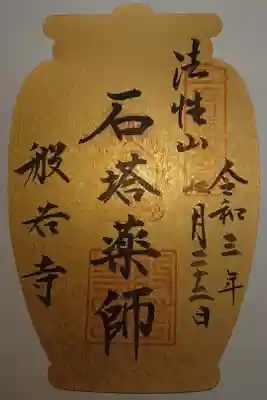 令和三年
月二十二日
法性山
石塔薬師
般若寺